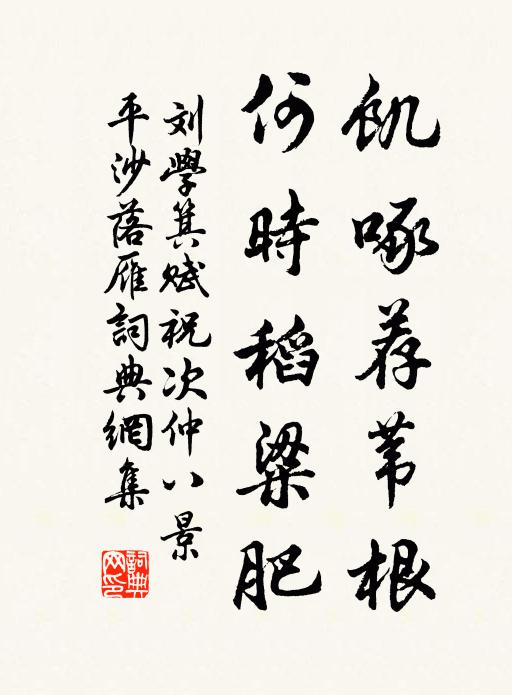 飢啄荐苇根
何時稻粱肥
刘學箕赋祝次仲八景
平沙落雁詞典網集
詞典網印